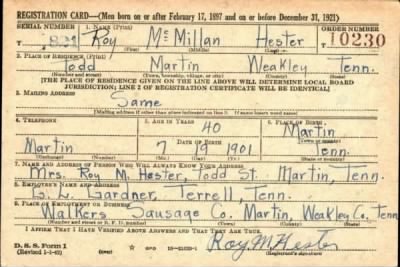 REGISTRATION CARD—(Men born on or after February 17, 1897 and on or before December 31, 1921)
SERIAL NUMBER 1. NAME (Print) ORDER NUMBER
821 Roy McMillan Hester 10230
(First) (Middle) (Last)
2. PLACE OF RESIDENCE (Print)
Todd Martin Weakley Tenn.
(Number and street) (Town, township, village, or city) (County) (State)
[THE PLACE OF RESIDENCE GIVEN ON THE LINE ABOVE WILL DETERMINE LOCAL BOARD
JURISDICTION; LINE 2 OF REGISTRATION CERTIFICATE WILL BE IDENTICAL]
3. MAILING ADDRESS
Same
[Mailing address if other than place indicated on line 2. If same insert word same]
4. TELEPHONE 5. AGE IN YEARS 6. PLACE OF BIRTH
40 Martin
DATE OF BIRTH (Town or county)
Martin 7 19 1901 Tenn.
(Exchange) (Number) (Mo.) (Day) (Yr.) (State or country)
7. NAME AND ADDRESS OF PERSON WHO WILL ALWAYS KNOW YOUR ADDRESS
Mrs. Roy M. Hester, Todd St. Martin, Tenn.
8. EMPLOYER'S NAME AND ADDRESS
Gardner, Terrell, Tenn.
9. PLACE OF EMPLOYMENT OR BUSINESS
Walkers Sausage Co. Martin, Weakley Co. Tenn
(Number and street or R. F. D. number) (Town) (County) (State)
I AFFIRM THAT I HAVE VERIFIED ABOVE ANSWERS AND THAT THEY ARE TRUE.
D. S. S. Form 1
(Revised 1-1-42) (over) Roy M. Hester
(Registrant's signature)